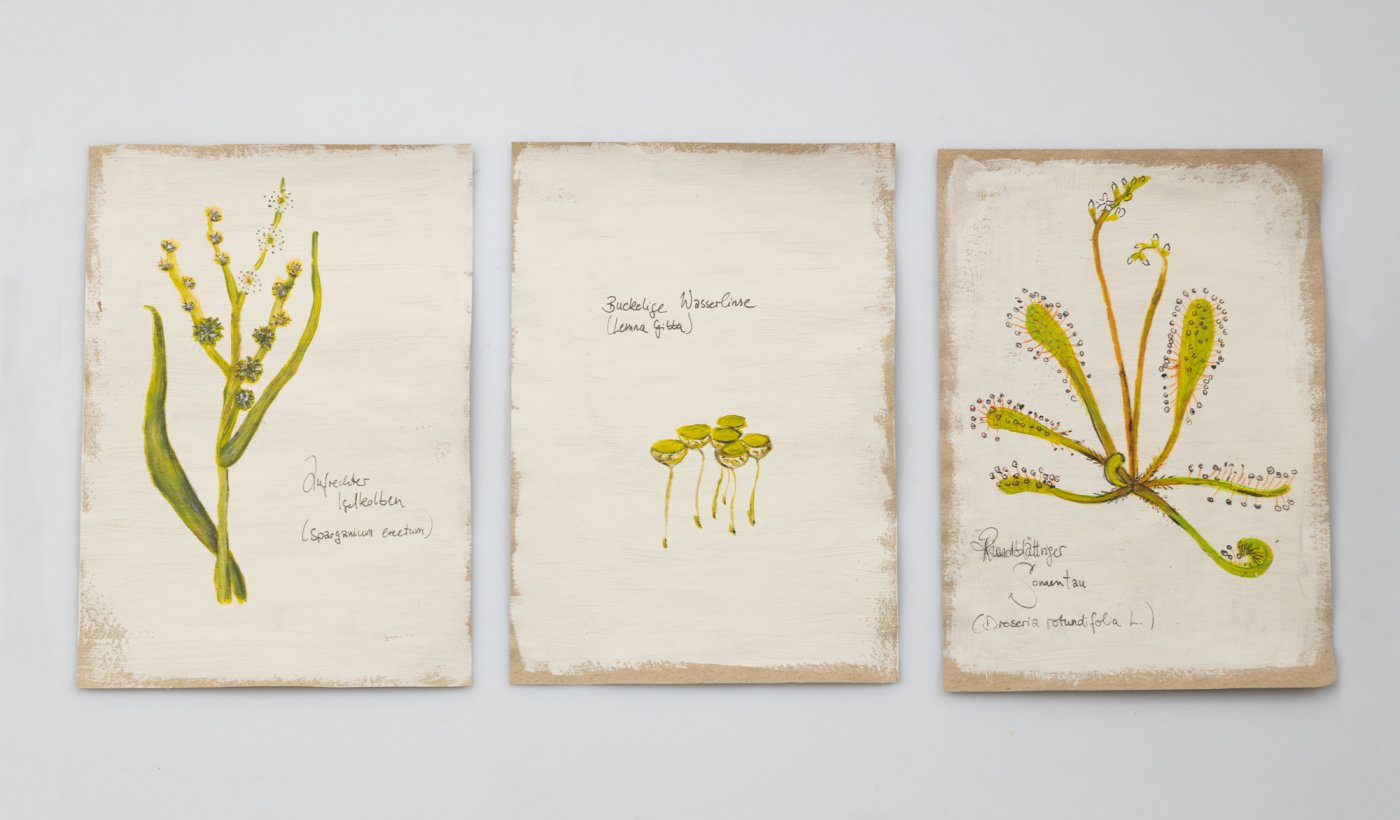 Aufrechter
Igelkolben
(Sparganium erectum)
Buckelige Wasserlinse
(Lemna Gibba)
Rundblättriger
Sonnentau
(Droseria rotundifola L.)